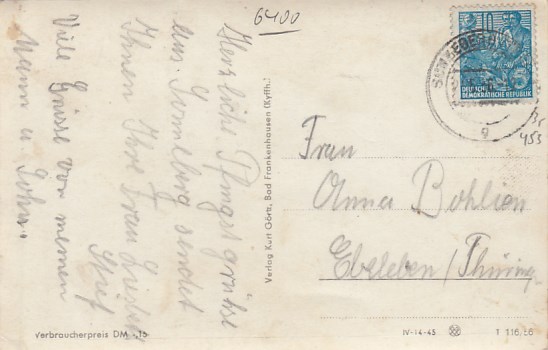 6400
Herzliche Pfingstgrüße
aus Sonneberg sendet
Ihnen Ihre Frau
Viele Grüsse von meinen
Mann u. Sohn.
Verlag Kurt Görtz, Bad Frankenhausen (Kyffh.)
10
DEUTSCHE
DEMOKRATISCHE REPUBLIK
g
453
Frau
Anna Bohlien
Ebeleben/Thüring.
Verbraucherpreis DM -,15
IV-14-45